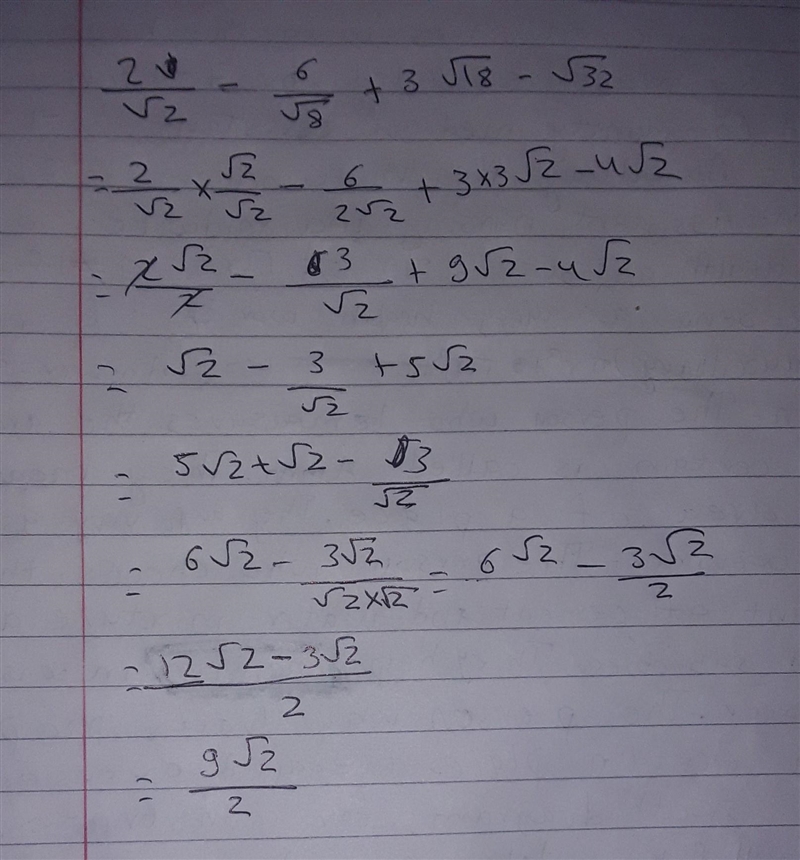 2/√2 - 6/√8 + 3√18 - √32
= 2/√2 × √2/√2 - 6/2√2 + 3×3√2 - 4√2
= 2√2/2 - 3/√2 + 9√2 - 4√2
= √2 - 3/√2 + 5√2
= 5√2 + √2 - 3/√2
= 6√2 - 3√2/√2×√2 = 6√2 - 3√2/2
= 12√2 - 3√2/2
= 9√2/2